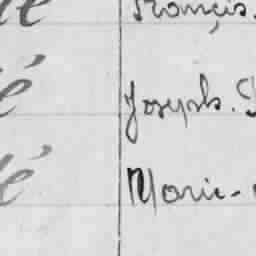 François.
Joseph.
Marie-